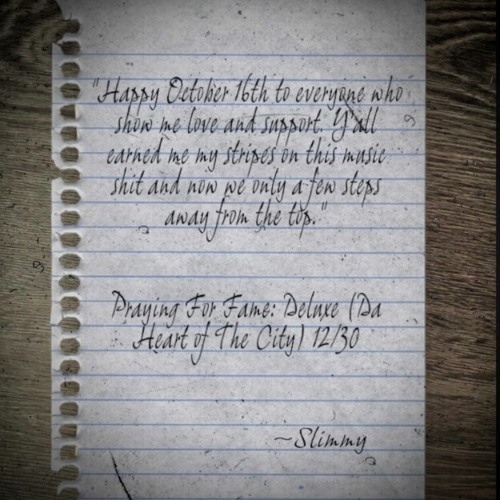 "Happy October 16th to everyone who
show me love and support. Y'all
earned me my stripes on this music
shit and now we only a few steps
away from the top."
Praying For Fame: Deluxe (Da
Heart of The City) 12/30
~Slimmy